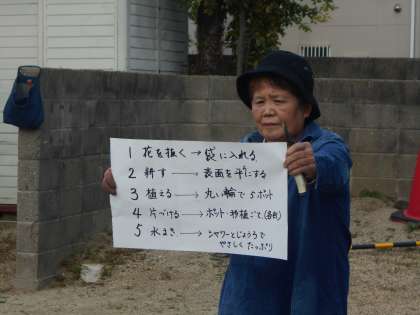 1 花を抜く → 袋に入れる
2 耕す → 表面を平にする
3 植える → 丸い輪で5ポット
4 片づける → ポット・移植ごて(各自)
5 水まき → シャワーとじょうろで
やさしくたっぷり